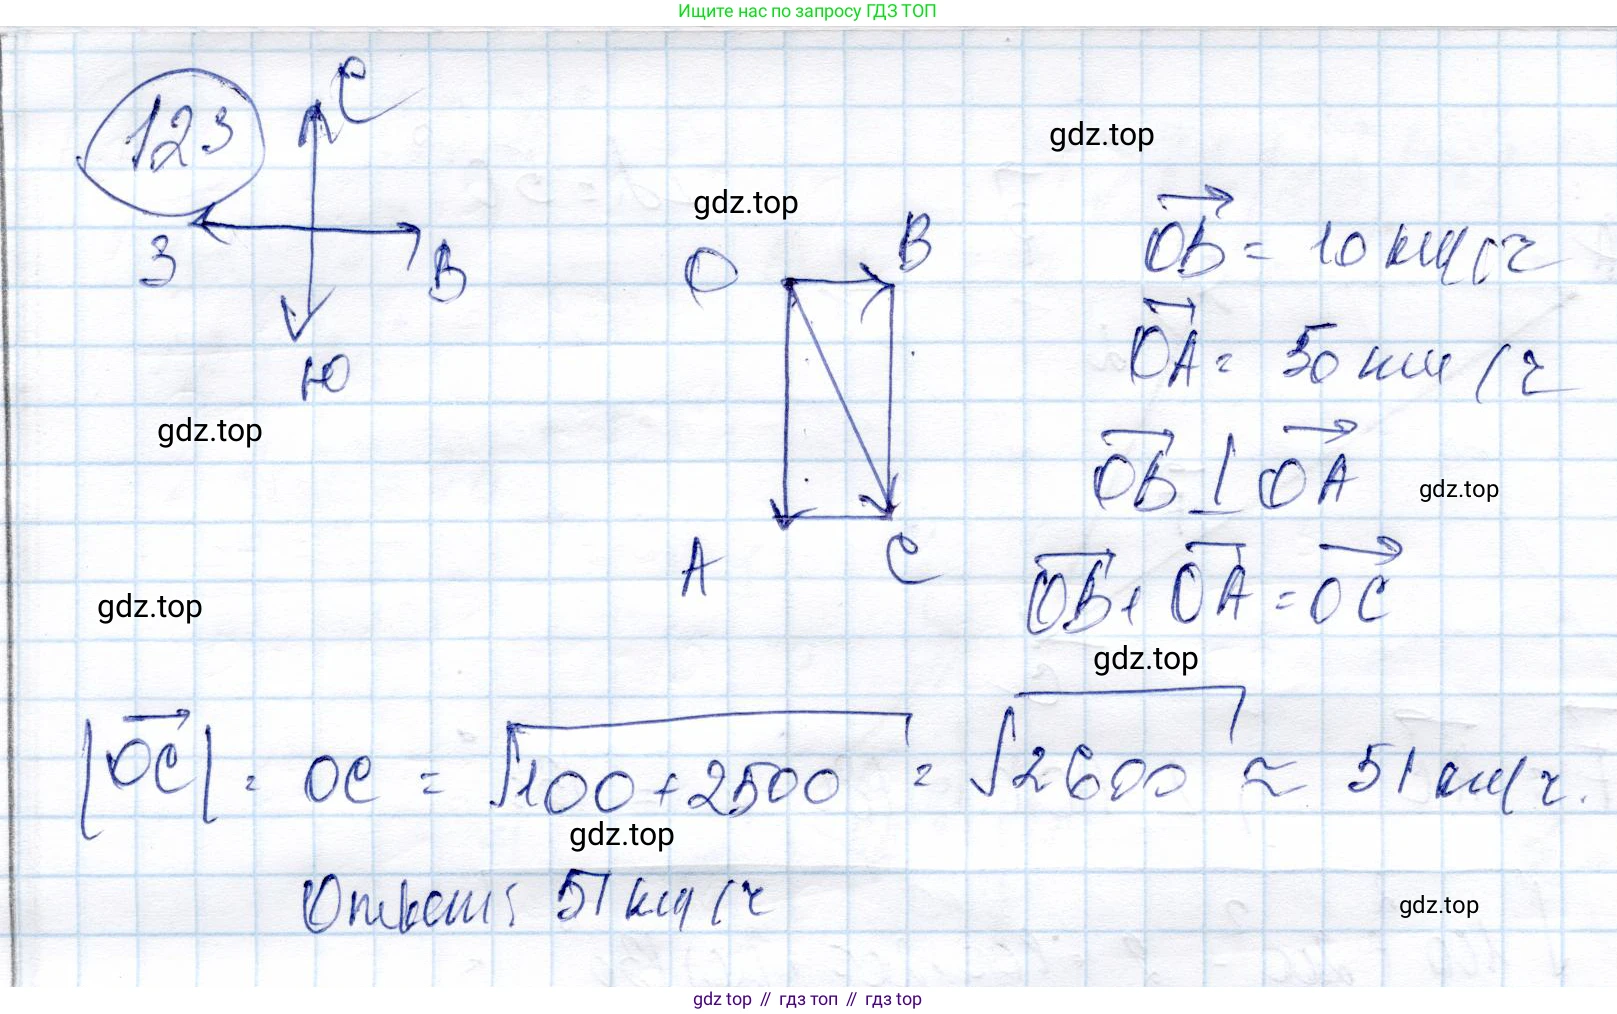 Ищите нас по запросу ГДЗ ТОП
123
С
З
В
Ю
gdz.top
gdz.top
gdz.top
gdz.top
O
B
A
C
OB = 10 км/ч
OA = 50 км/ч
OB ⊥ OA
gdz.top
OB + OA = OC
gdz.top
|OC| = OC = √100+2500 = √2600 ≈ 51 км/ч.
gdz.top
Ответ: 51 км/ч
gdz.top
gdz top // гдз топ // гдз top